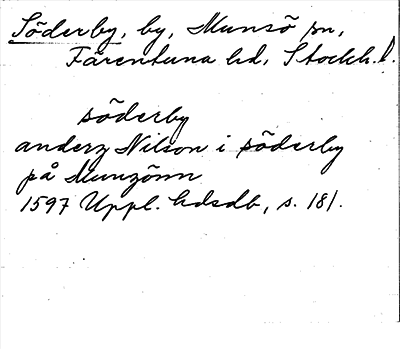 Söderby, by, Munsö sn,
Färentuna hd, Stockh. l.
söderby
anderz Nilson i söderby
på Munzönn
1597 Uppl. hdsdb, s. 181.